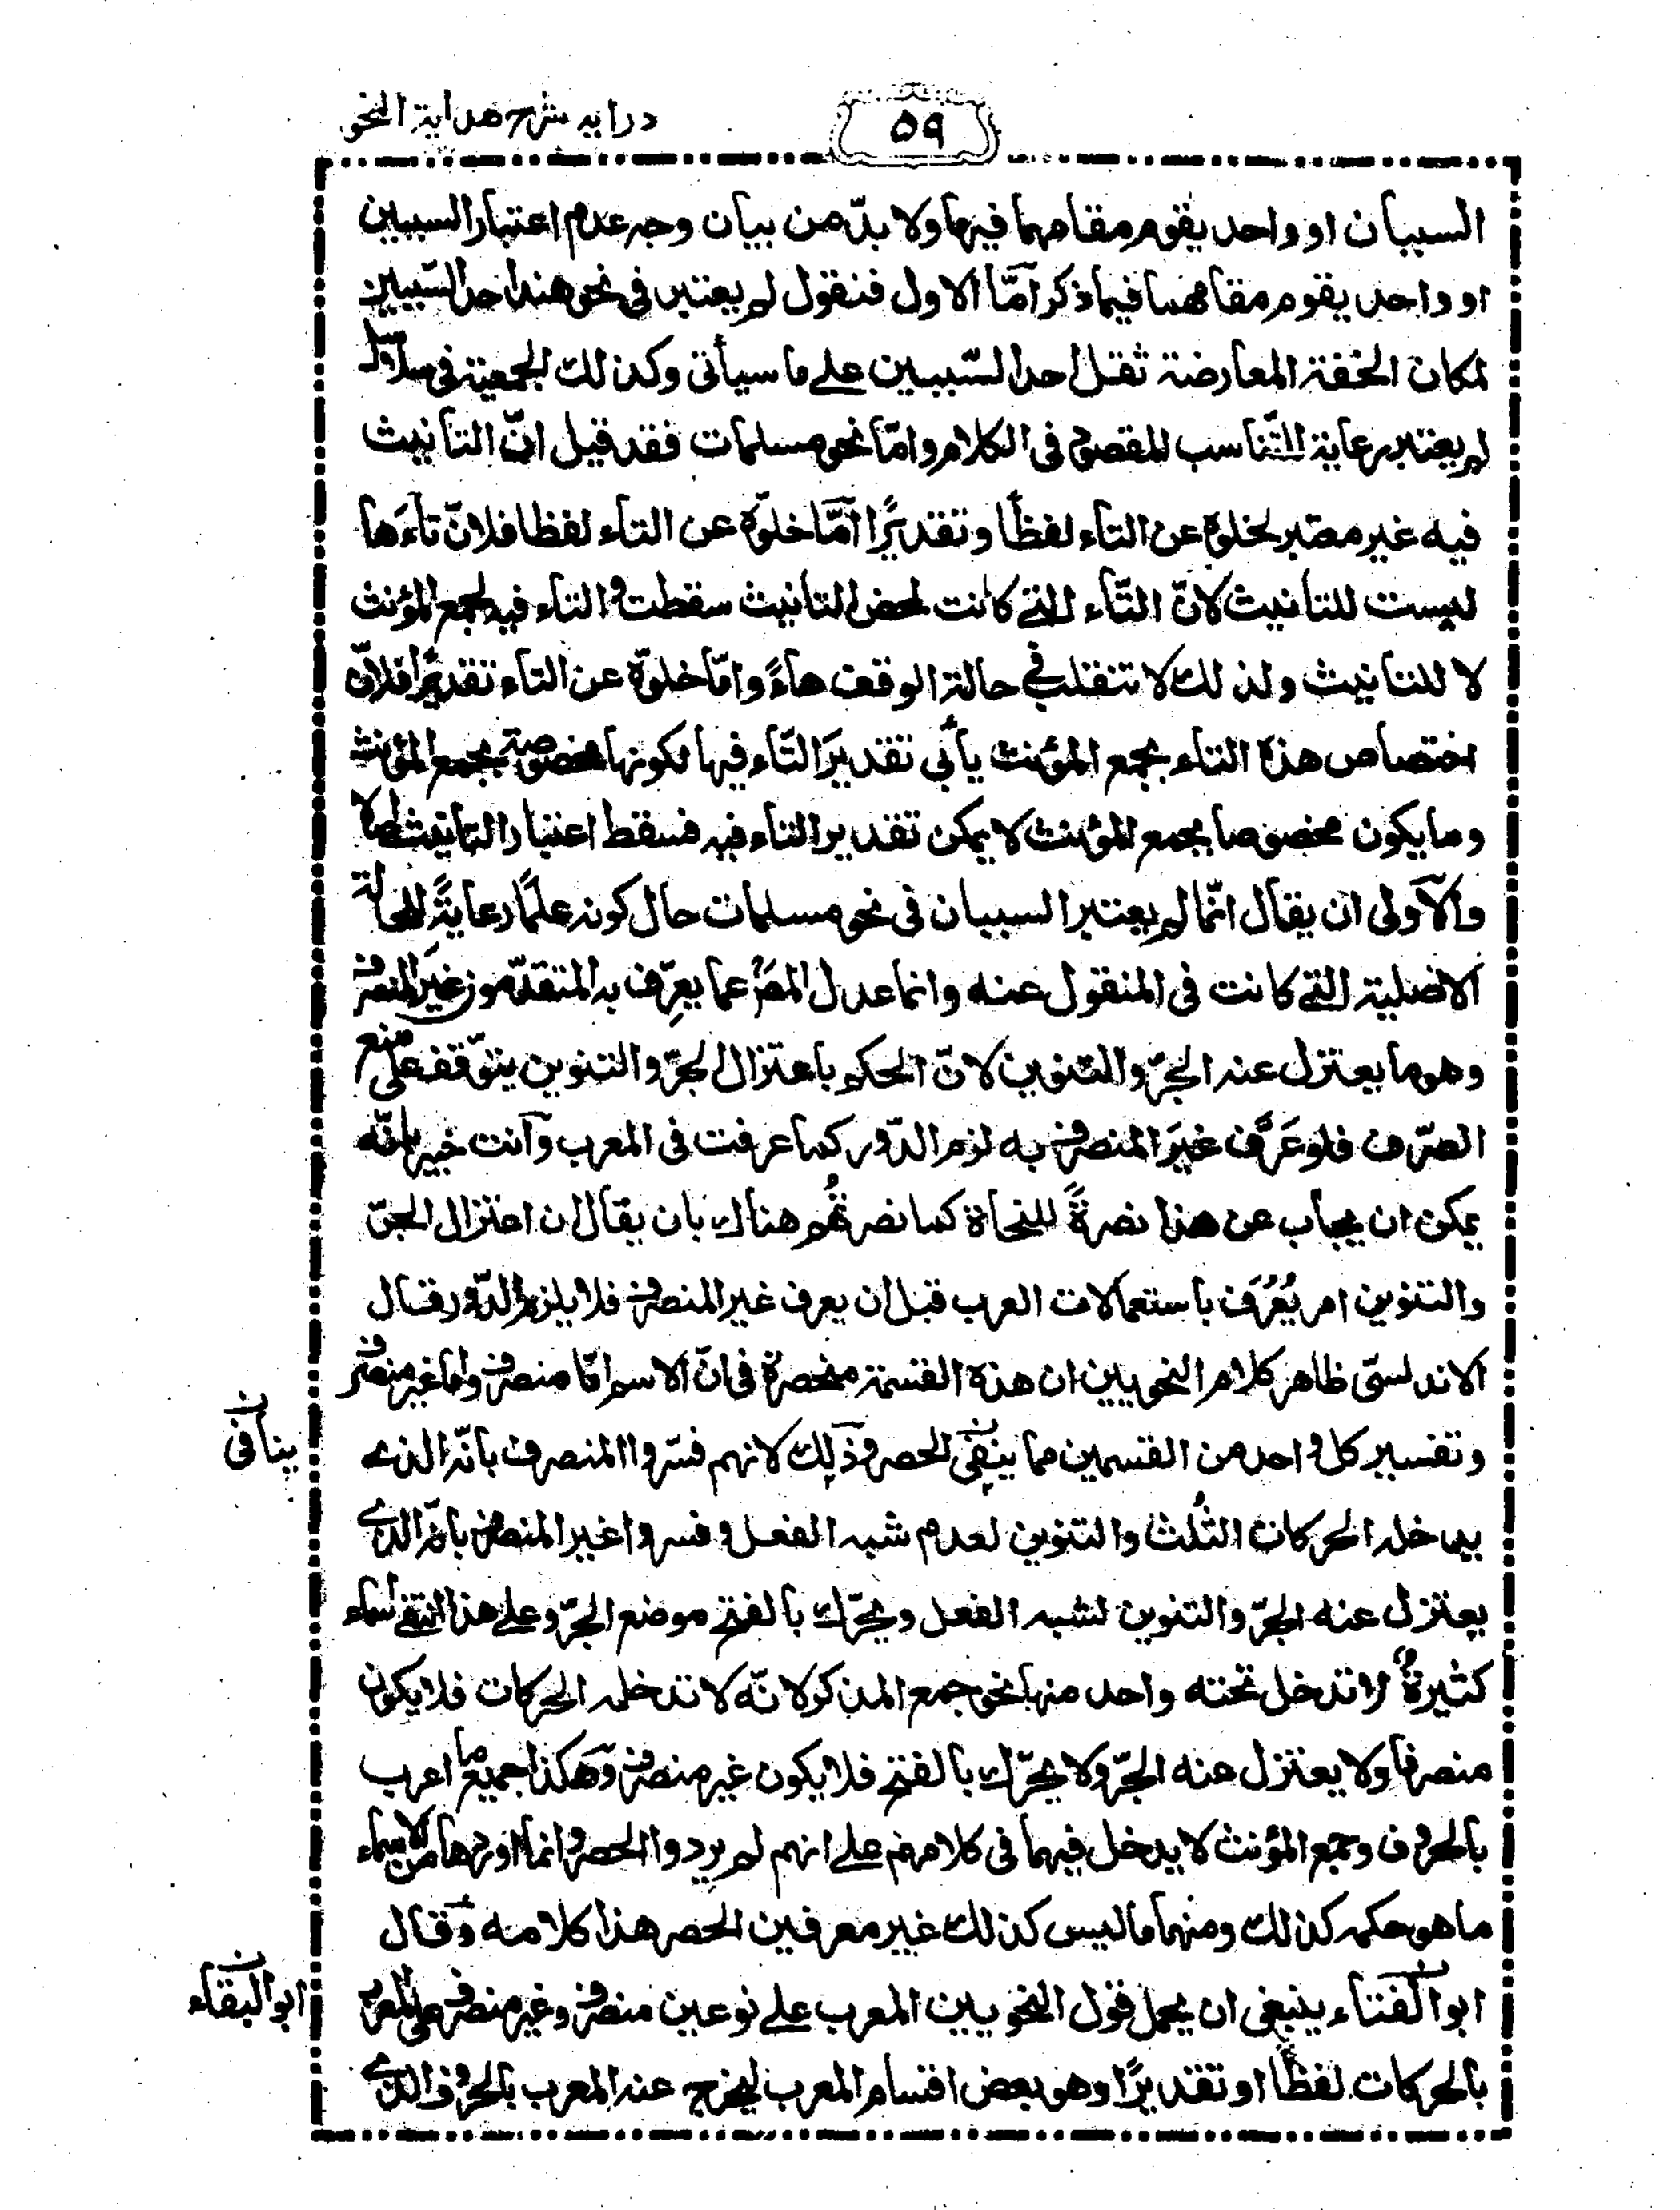 درايه شرح هداية النحو
٥٩
السببان او واحد يقوم مقامهما فيها ولا بدّ من بيان وجه عدم اعتبار السببين
او واحد يقوم مقامهما فيما ذكر امّا الاول فنقول لم يعتبر فى نحو هند احد السّببين
لمكان الخفة المعارضة ثقل احد السّببين على ما سيأتى وكذلك الجمعية فى سلاسلا
لم يعتبر رعاية للتّناسب المقصود فى الكلام وامّا نحو مسلمات فقد قيل انّ التأنيث
فيه غير معتبر لخلوّه عن التاء لفظًا وتقديرًا امّا خلوّه عن التاء لفظا فلانّ تاءَها
ليست للتانيث لانّ التّاء التى كانت لمحض التانيث سقطت والتاء فيه لجمع المؤنث
لا للتانيث ولذلك لا تنقلب فى حالة الوقف هاءً وامّا خلوّه عن التاء تقديرًا فلانّ
اختصاص هذه التاء بجمع المؤنث يأبى تقديرَ التّاء فيها لكونها مخصوصة بجمع المؤنث
وما يكون مخصوصا بجمع المؤنث لا يمكن تقدير التاء فيه فسقط اعتبار التانيث اصلا
والاَولى ان يقال انّما لم يعتبر السببان فى نحو مسلمات حال كونه علمًا رعايةً للحالة
الاصلية التى كانت فى المنقول عنه وانما عدل المصَ عما يعرِّف به المتقدّمون غيرَ المنصرف
وهو ما يعتزل عنه الجرّ والتنوين لانّ الحكم باعتزال الجرّ والتنوين يتوّقف على منع
الصّرف فلو عَرَّف غيرَ المنصرف به لزم الدّور كما عرفت فى المعرب وآنت خبير بانّه
يمكن ان يجاب عن هذا نصرةً للنحاة كما نصرتُهم هناك بان يقال ان اعتزال الجرّ
والتنوين امر يُعْرَف باستعمالات العرب قبل ان يعرف غير المنصرف فلا يلزم الدّور وقال
الاندلسىّ ظاهر كلام النحويين ان هذه القسمة منحصرة فى انّ الاسم امّا منصرف واما غير منصرف
وتفسير كل واحد من القسمين مما ينفى الحصر وذلك لانهم فسّروا المنصرف بانّه الذى
ينافى
يدخله الحركات الثُلث والتنوين لعدم شبه الفعل وفسروا غير المنصرف بانّه الذى
يعتزل عنه الجرّ والتنوين لشبه الفعل ويحرّك بالفتح موضع الجرّ وعلى هذا انتفى اسماء
كثيرةٌ لا تدخل تحته واحد منها نحو جمع المذكر لانّه لا تدخله الحركات فلا يكون
منصرفا ولا يعتزل عنه الجرّ ولا يحرّك بالفتح فلا يكون غير منصرف وهكذا جميع ما اعرب
بالحروف وجمع المؤنث لا يدخل فيهما فى كلامهم على انهم لم يردوا الحصر وانما اوردها من الاسماء
ما هو حكمه كذلك ومنهما ما ليس كذلك غير معرفين الحصر هذا كلامه وقال
ابو الفتاء ينبغى ان يحمل قول النحويين المعرب على نوعين منصرف وغير منصرف على المعرب
ابو البقاء
بالحركات لفظًا او تقديرًا وهو بعض اقسام المعرب ليخرج عنه المعرب بالحروف الذى